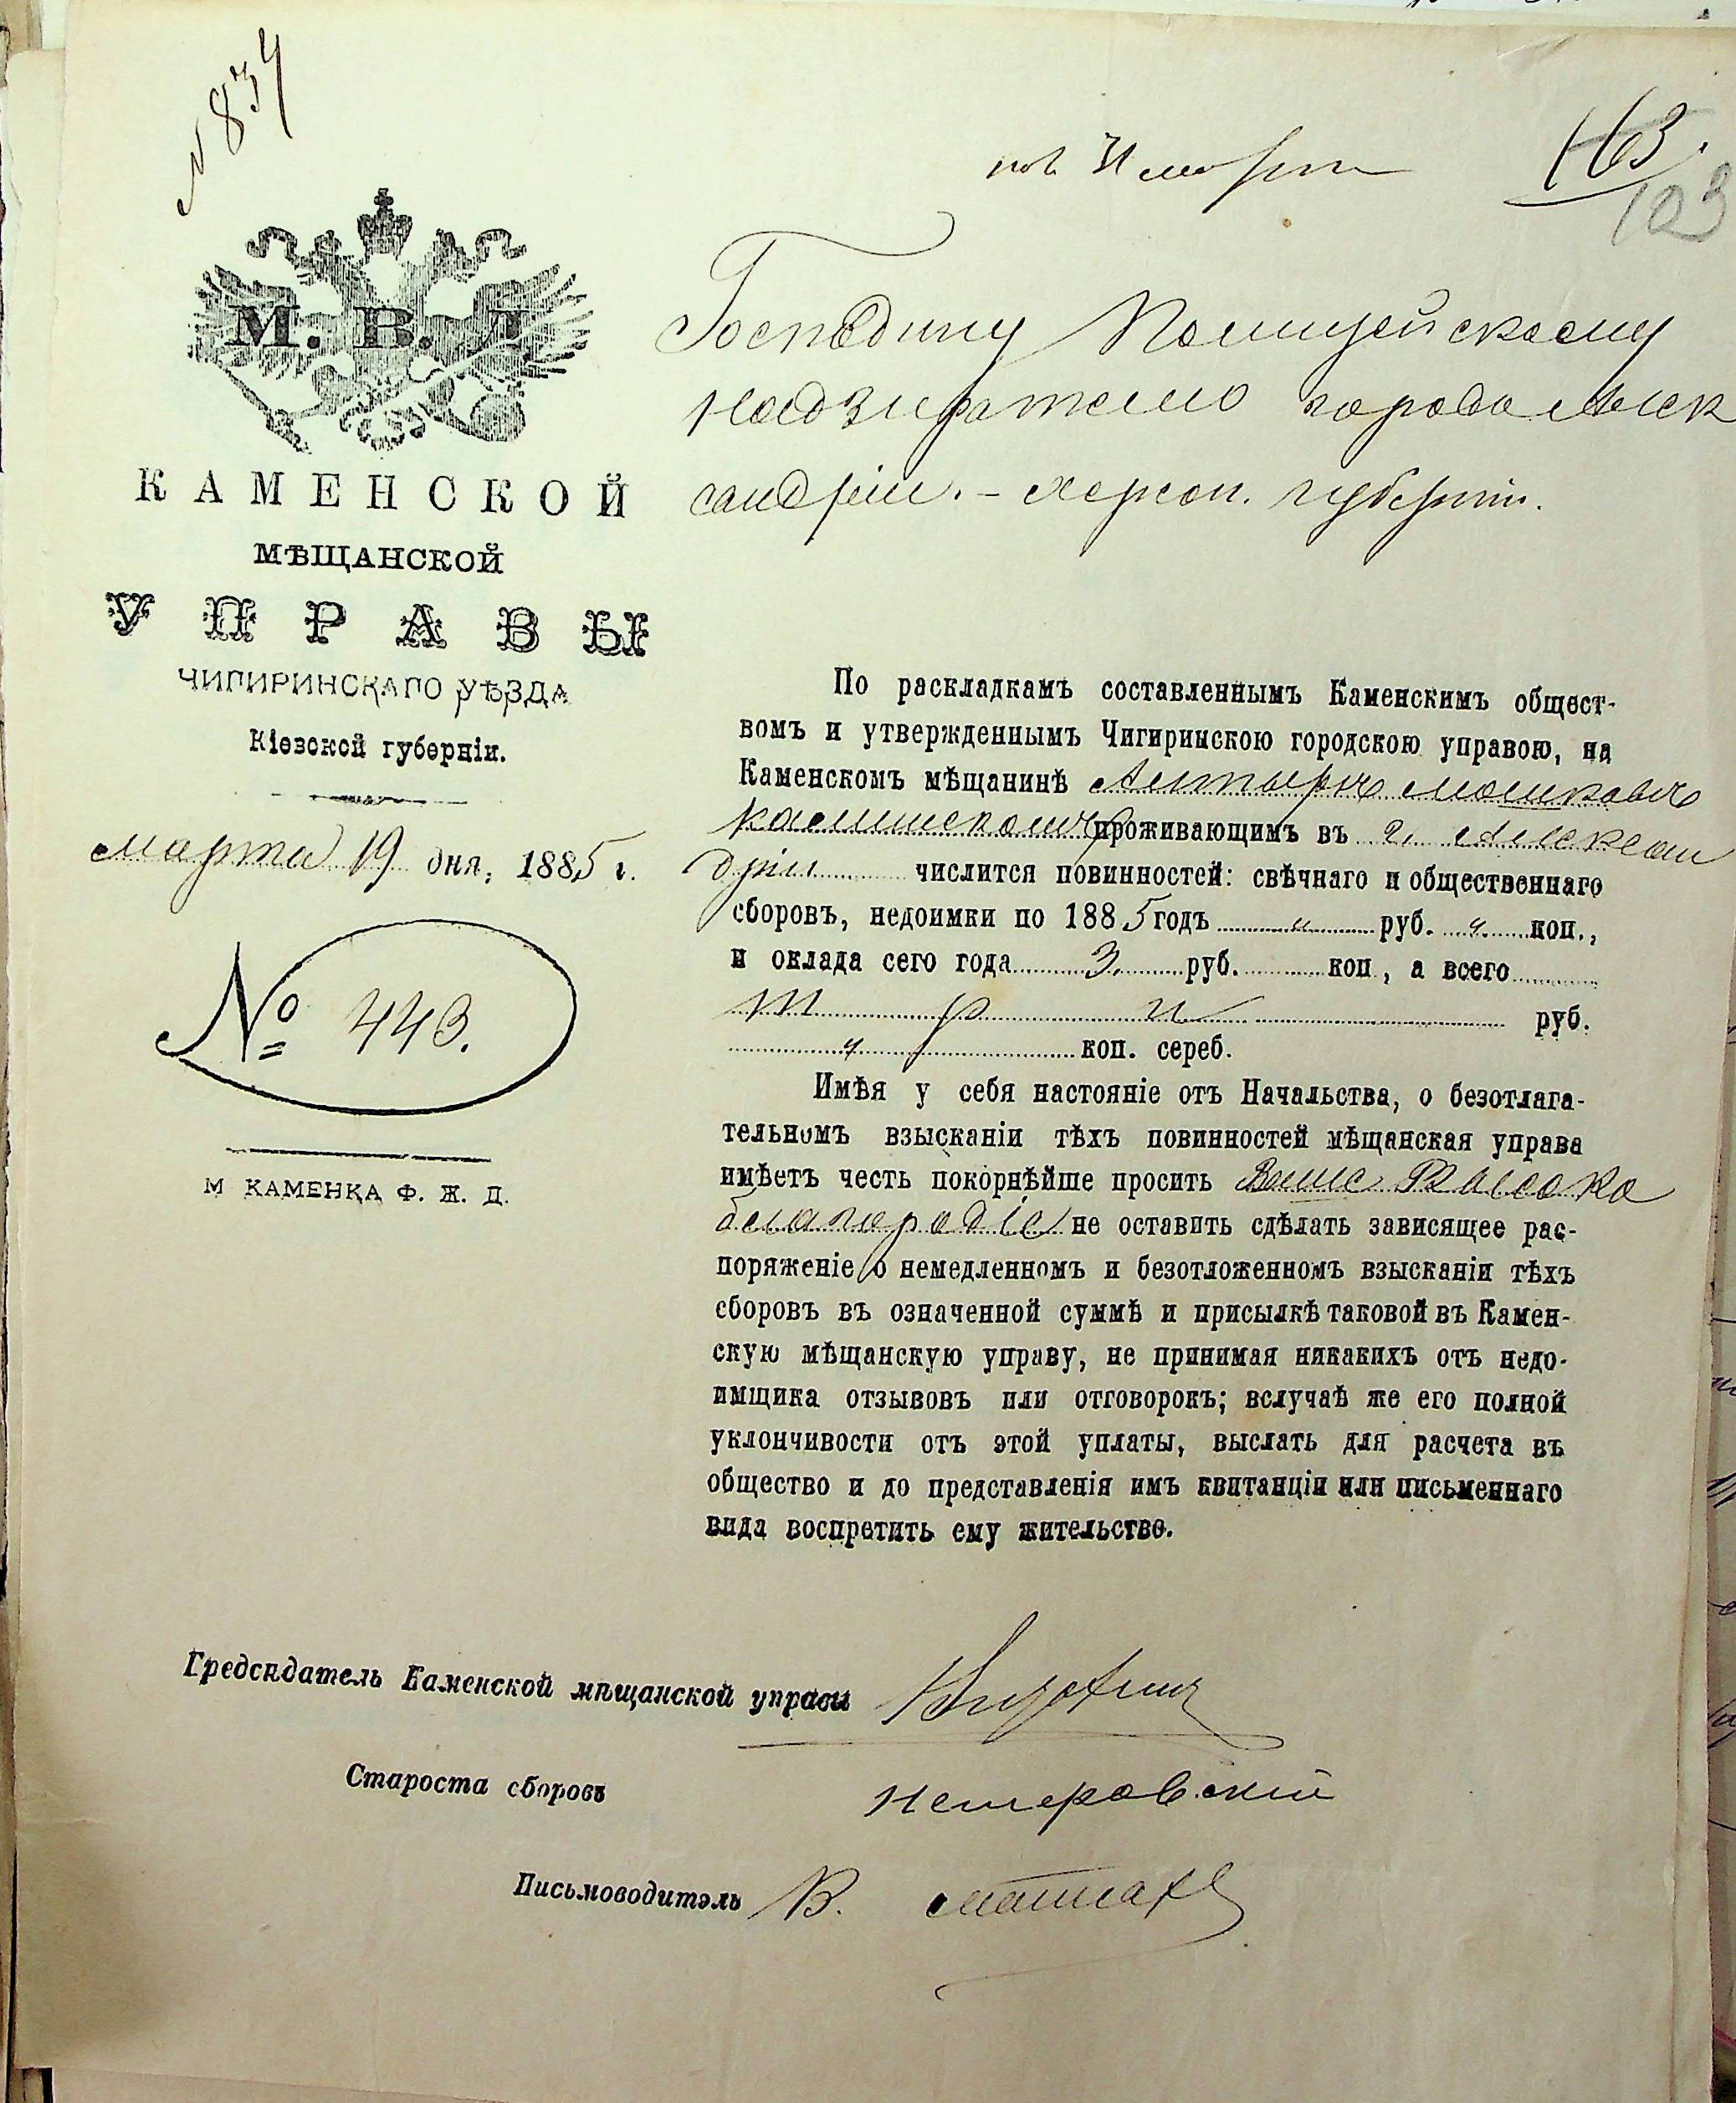 № 834
103
М. В. Д
КАМЕНСКОЙ
МѢЩАНСКОЙ
УПРАВЫ
ЧИГИРИНСКАГО УѢЗДА
Кіевской губерніи.
марта 19 дня, 1885 г.
№ 443.
М КАМЕНКА Ф. Ж. Д.
Господину Полицейскому
Надзирателю города Алек
сандріи. - Херсон. губерніи.
По раскладкамъ составленнымъ Каменскимъ общест-
вомъ и утвержденнымъ Чигиринскою городскою управою, на
Каменскомъ мѣщанинѣ Мошковѣ
проживающимъ въ г. Алексан
дріи числится повинностей: свѣчнаго и общественнаго
сборовъ, недоимки по 1885 годъ " руб. " коп.,
и оклада сего года 3 руб. коп, а всего
три руб.
" коп. сереб.
Имѣя у себя настояніе отъ Начальства, о безотлага-
тельномъ взысканіи тѣхъ повинностей мѣщанская управа
имѣетъ честь покорнѣйше просить Ваше Высоко
благородіе не оставить сдѣлать зависящее рас-
поряженіе о немедленномъ и безотложенномъ взысканіи тѣхъ
сборовъ въ означенной суммѣ и присылкѣ таковой въ Камен-
скую мѣщанскую управу, не принимая никакихъ отъ недо-
имщика отзывовъ или отговорокъ; вслучаѣ же его полной
уклончивости отъ этой уплаты, выслать для расчета въ
общество и до представленія имъ квитанціи или письменнаго
вида воспретить ему жительство.
Предсѣдатель Каменской мѣщанской управы
Староста сборовъ
Письмоводитель В.